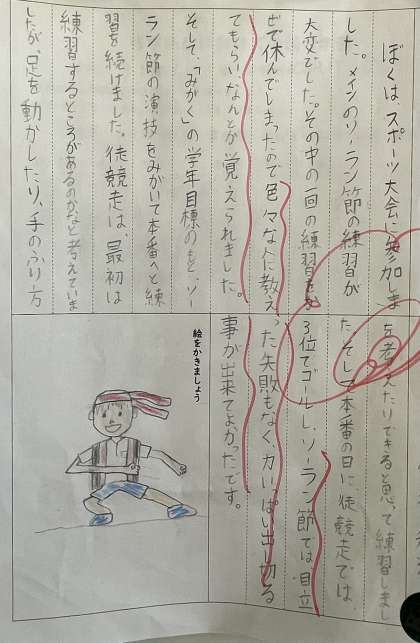 ぼくは、スポーツ大会に参加しま
した。メインのソーラン節の練習が
大変でした。その中の一回の練習を
で休んでしまったので色々な人に教え
てもらい、なんとか覚えられました。
そして、「みがく」の学年目標のもと、ソー
ラン節の演技をみがいて本番へと練
習を続けました。徒競走は、最初は
練習するところがあるのかなと考えていま
したが、足を動かしたり、手のふり方
を考えたりできると思って練習しまし
た。そして本番の日に徒競走では、
3位でゴールし、ソーラン節では目立
った失敗もなく、力いっぱい出し切る
事が出来てよかったです。
絵をかきましょう